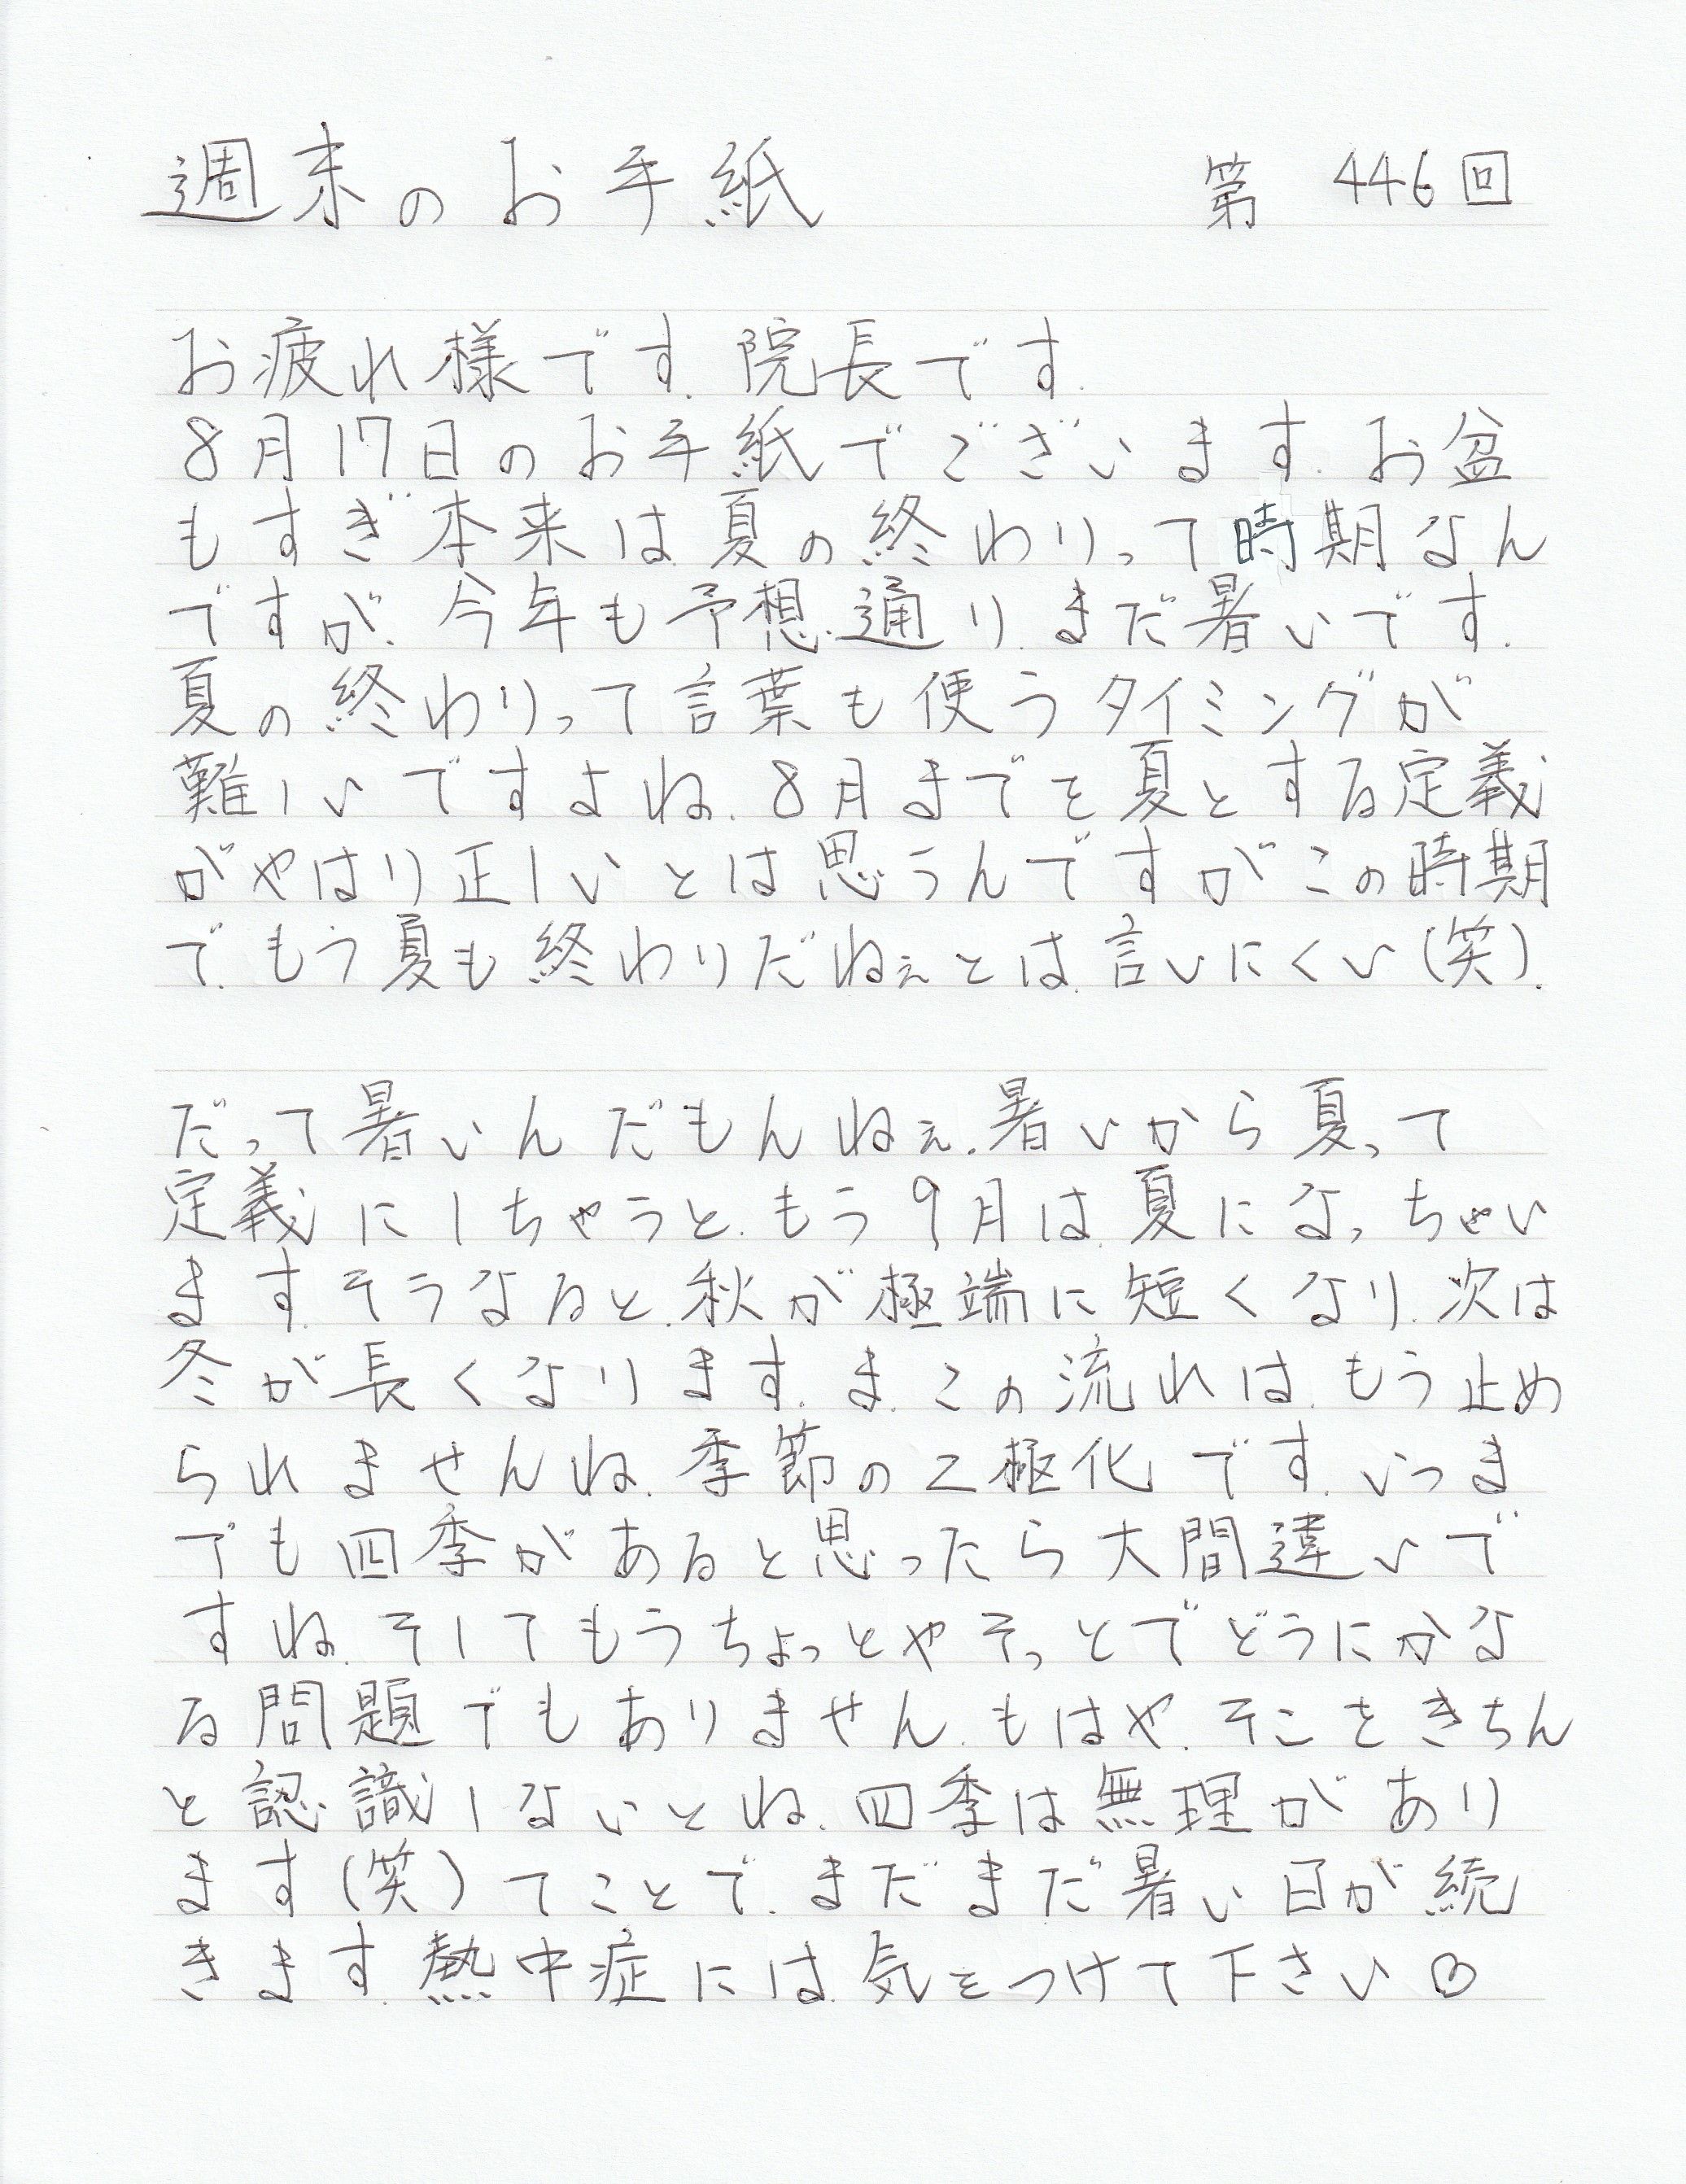 週末のお手紙 第 446回
お疲れ様です.院長です.
8月17日のお手紙でございます.お盆
もすぎ本来は夏の終わりって時期なん
ですが.今年も予想通り.まだ暑いです.
夏の終わりって言葉も使うタイミングが
難しいですよね.8月までを夏とする定義
がやはり正しいとは思うんですがこの時期
で.もう夏も終わりだねぇとは.言いにくい(笑).
だって暑いんだもんねぇ.暑いから夏って
定義にしちゃうと.もう9月は.夏になっちゃい
ます.そうなると.秋が極端に短くなり.次は
冬が長くなります.ま.この流れは.もう止め
られませんね.季節の二極化です.いつま
でも四季があると思ったら大間違いで
すね.そしてもうちょっとやそっとでどうにかな
る問題でもありません.もはや.そこをきちん
と認識しないとね.四季は無理があり
ます(笑)てことで.まだまだ暑い日が続
きます.熱中症には.気をつけて下さい♡